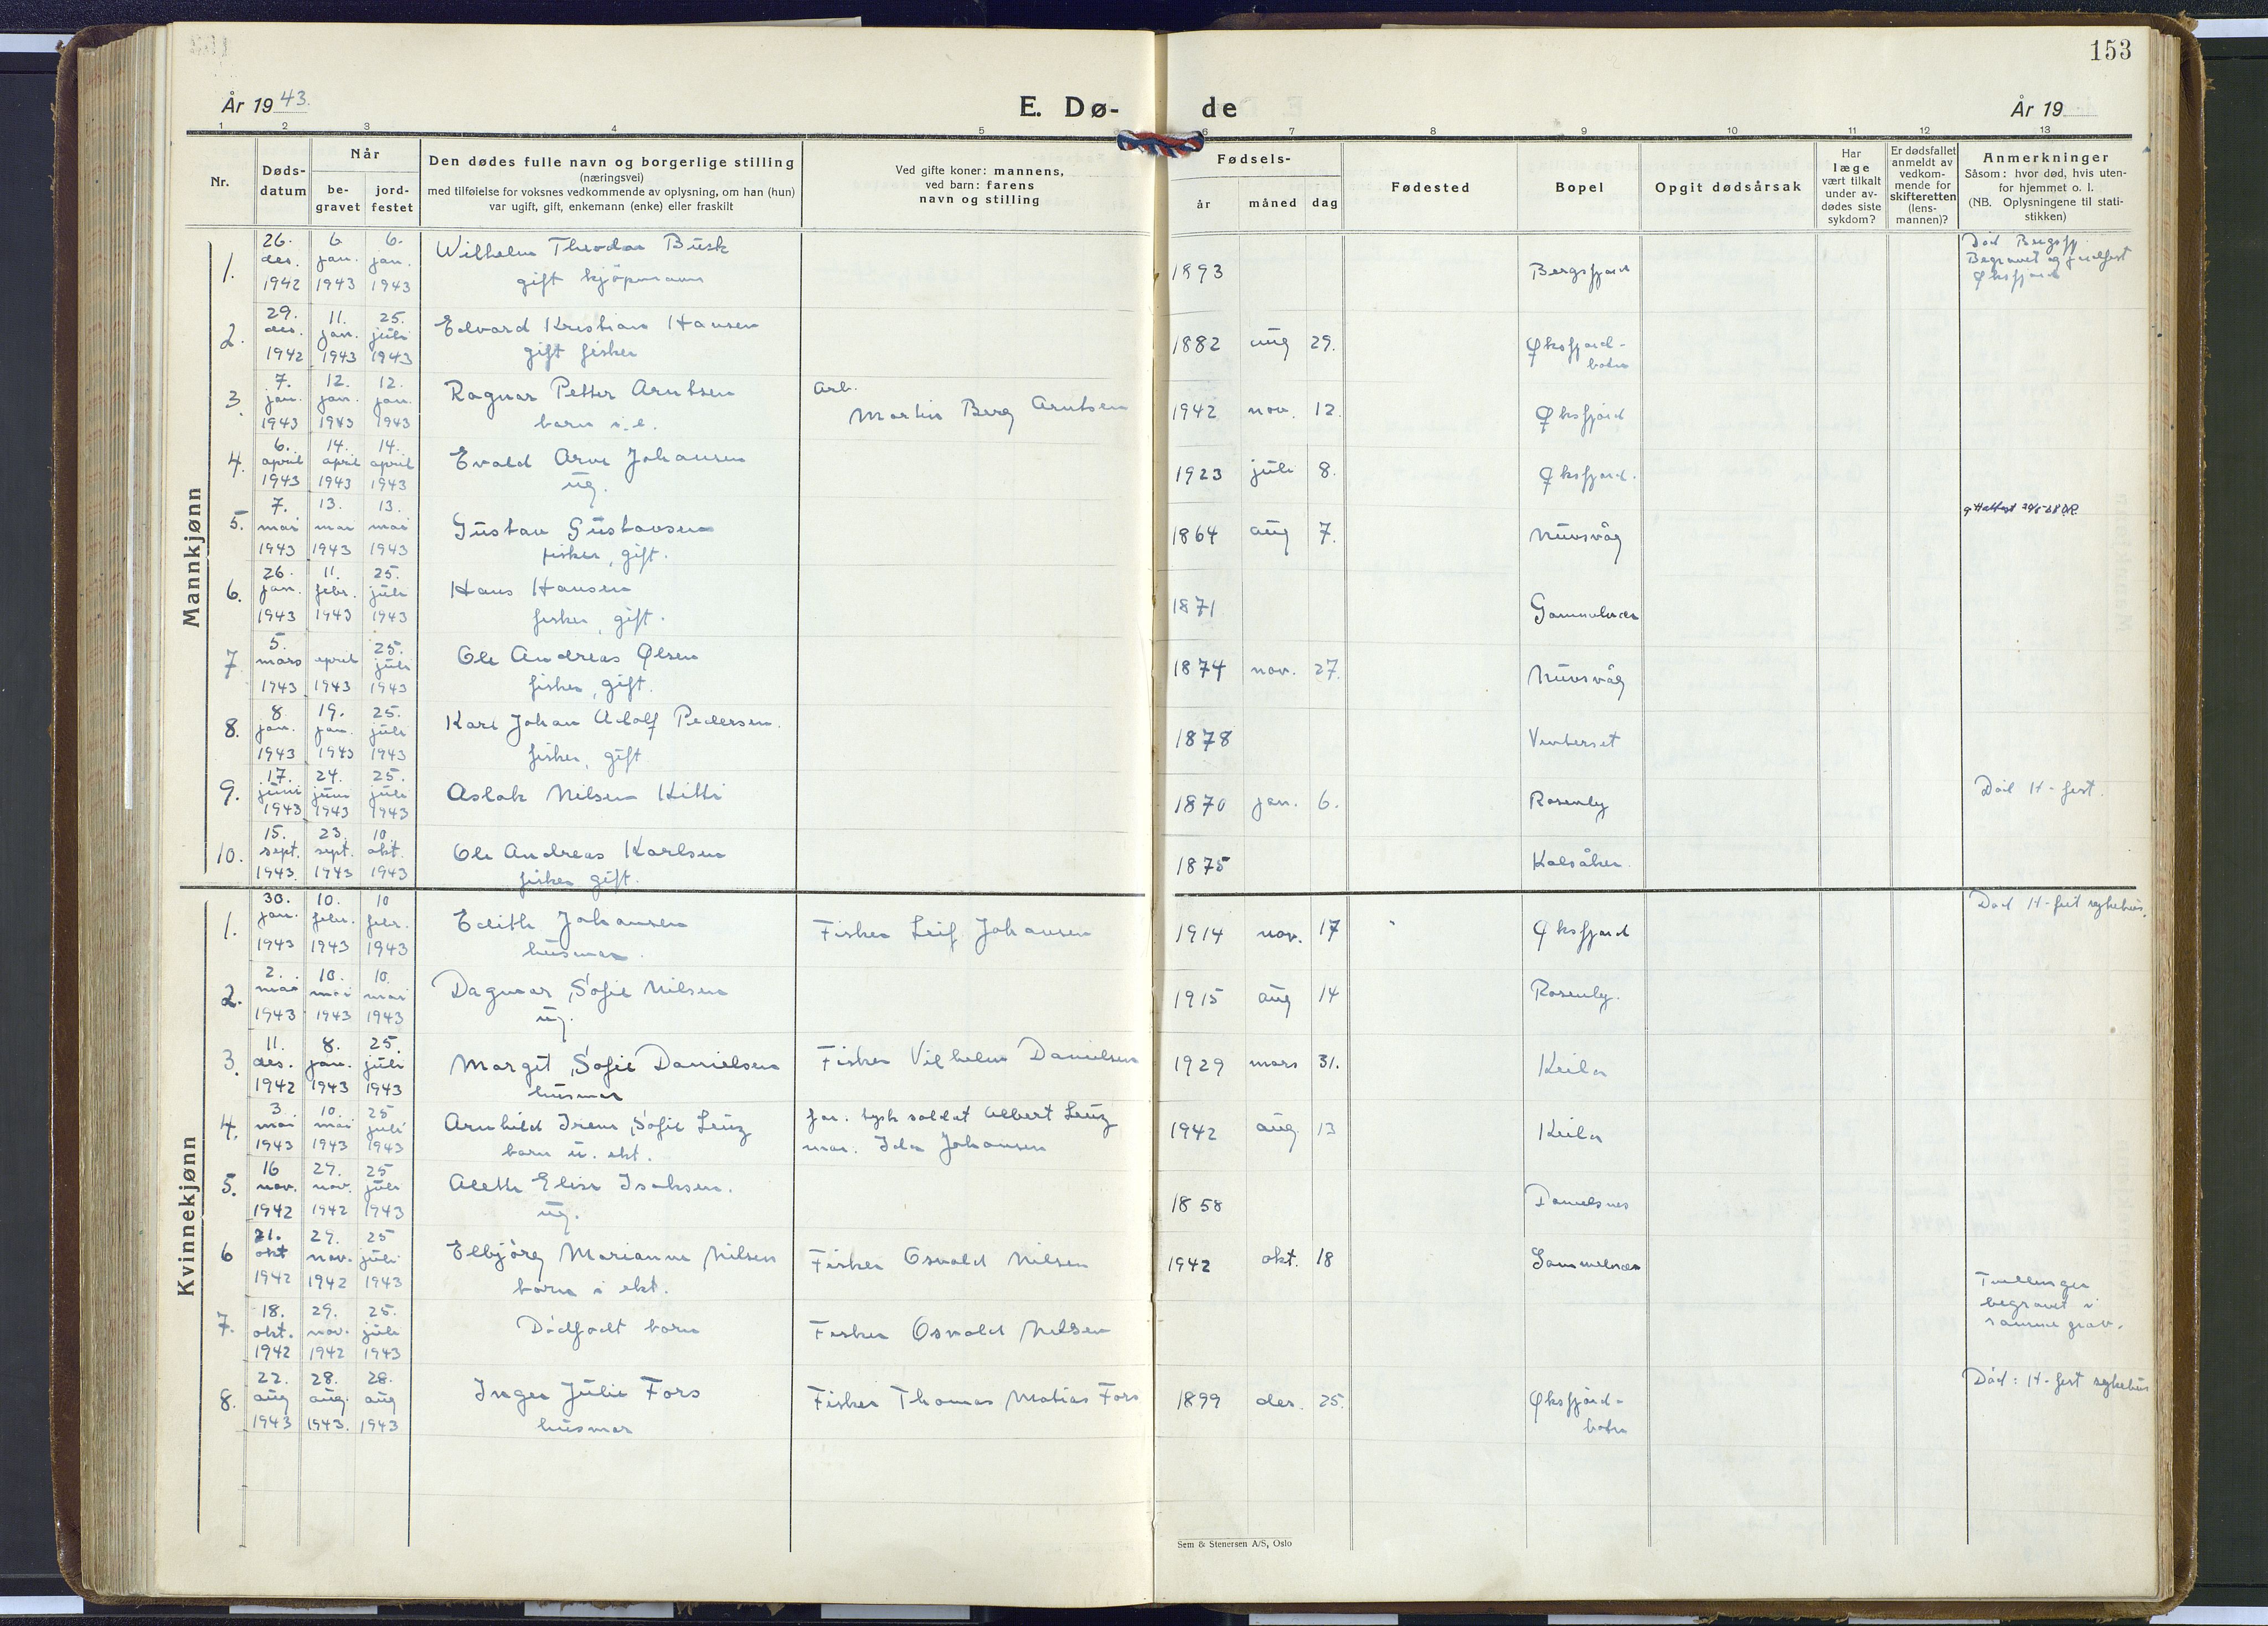 153
År 1943.
E. Dø-
de
År 19
1 2 3 4 5 6 7 8 9 10 11 12 13
Nr.
Døds-
datum
Når
be-
gravet
jord-
festet
Den dødes fulle navn og borgerlige stilling
(næringsvei)
med tilføielse for voksnes vedkommende av oplysning, om han (hun)
var ugift, gift, enkemann (enke) eller fraskilt
Ved gifte koner: mannens,
ved barn: farens
navn og stilling
Fødsels-
år måned dag
Fødested
Bopel
Opgit dødsårsak
Har
læge
vært tilkalt
under av-
dødes siste
sykdom?
Er dødsfallet
anmeldt av
vedkom-
mende for
skifteretten
(lens-
mannen)?
Anmerkninger
Såsom: hvor død, hvis uten-
for hjemmet o. l.
(NB. Oplysningene til stati-
stikken)
Mannkjønn
1. 26. des. 1942 6. jan. 1943 6. jan. 1943 Wilhelm Theodor Busk 1893 Bergsfjord Død Bergsfj.
gift kjøpmann Begravet og jordfest
Øksfjord
2. 29. des. 1942 11. jan. 1943 25. juli 1943 Edvard Kristian Hansen 1882 aug 29. Øksfjord-
gift fisker botn
3. 7. jan. 1943 12. jan. 1943 12. jan. 1943 Ragnar Petter Arntsen arb. Martin Berg Arntsen 1942 nov. 12. Øksfjord
barn i. e.
4. 6. april 1943 14. april 1943 14. april 1943 Evald Arne Johansen 1923 juli 8. Øksfjord.
ug.
5. 7. mai 1943 13. mai 1943 13. mai 1943 Gustav Gustavsen 1864 aug 7. Nuvsvåg
fisker, gift.
6. 26. jan. 1943 11. febr. 1943 25. juli 1943 Hans Hansen 1871 Gammelvær
fisker, gift.
7. 5. mars 1943 april 1943 25. juli 1943 Ole Andreas Olsen 1874 nov. 27. Nuvsvåg
fisker, gift.
8. 8 jan. 1943 19. jan. 1943 25. juli 1943 Karl Johan Adolf Pedersen. 1878 Vinterset
fisker, gift
9. 17. juni 1943 24. juni 1943 25. juli 1943 Aslak Nilsen Kitti 1870 jan. 6. Rosenby Død H-fest.
10. 15. sept. 1943. 23. sept. 1943 10. okt. 1943 Ole Andreas Karlsen 1875 Kalsåker.
fisker gift.
Kvinnekjønn
1. 30. jan. 1943 10. febr. 1943 10 febr. 1943 Edith Johansen Fisker Leif Johansen 1914 nov. 17 Øksfjord Død H-fest sykehus.
husmor.
2. 2. mai 1943 10. mai 1943 10. mai 1943 Dagmar Sofie Nilsen 1915 aug 14 Rosenby.
ug.
3. 11. des. 1942 8. jan. 1943 25. juli 1943 Margit Sofie Danielsen Fisker Vilhelm Danielsen 1929 mars 31. Keila
husmor
4. 3. mai 1943 10. mai 1943 25 juli 1943 Arnhild Irene Sofie Lenz far. tysk soldat Albert Lenz 1942 aug. 13 Keila
barn u. ekt. mor. Ida Johansen
5. 16 nov. 1942 27. nov. 1942 25 juli 1943 Aleth Elise Isaksen. 1858 Danielsnes
ug.
6 21. okt 1942 29. nov. 1942 25 juli 1943 Elbjørg Marianne Nilsen Fisker Osvald Nilsen 1942 okt. 18 Gammelvær
barn i ekt.
7. 18. okt. 1942 29. nov. 1942 25. juli 1943 Dødfødt barn Fisker Osvald Nilsen Tvillinger
begravet i
samme grav.
8. 22. aug 1943 28. aug. 1943. 28. aug 1943 Inga Julie Fors Fisker Thomas Matias Fors 1899 des. 25. Øksfjord- Død: H-fest sykehus
husmor botn
Sem & Stenersen A/S, Oslo